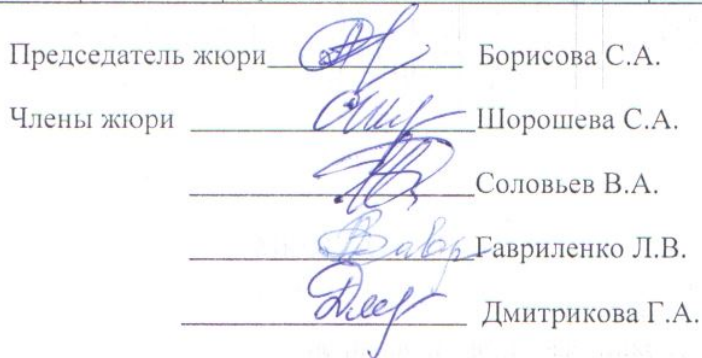 Председатель жюри Борисова С.А.
Члены жюри Шорошева С.А.
Соловьев В.А.
Гавриленко Л.В.
Дмитрикова Г.А.